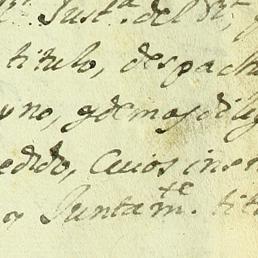 Just.a del Rl
titulo, despacho
yno, y demas dilig
edido, Cuios inser
Juntamte. tit